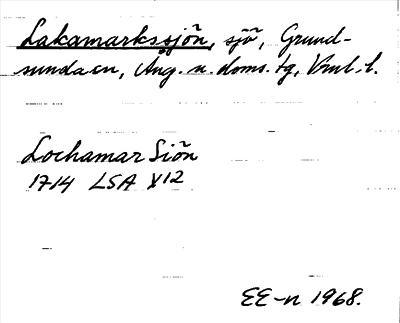 Lakamarkssjön, sjö, Grund-
sunda sn, Ång. n. doms. tg, Vnl. l.
Lochamar Siön
1714 LSA X12
EE-n 1968.